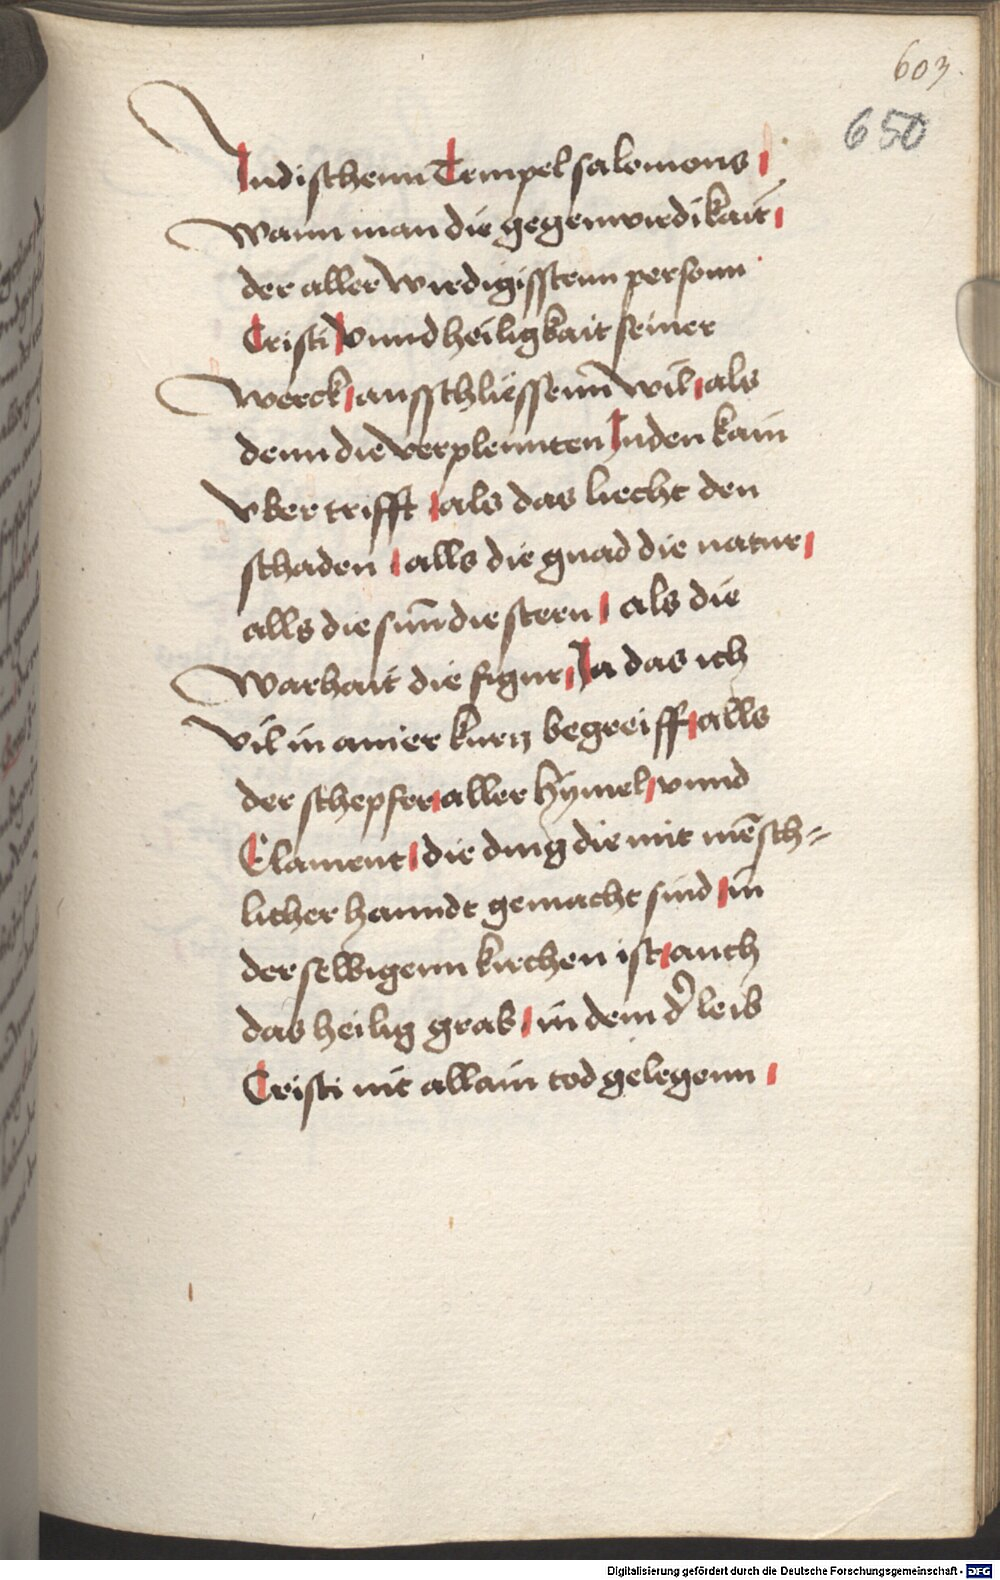 603.
650
Iudischenn Tempel salomons /
Wann man die gegenwirdikait /
der aller wirdigisstenn personn
Cristi / vnnd heiligkait seiner
Werck / ausschliessenn wil / als
denn die verplennten Juden kain
vber trifft / als das liecht den
schaden / alls die gnad die natur /
alls die sun̄ die stern / als die
Warhait die figur / Ja das ich
vil in ainer kurtz begreiff / alls
der schepfer / aller hymel / vnnd
Elament / die ding die mit mēsch-
licher hanndt gemacht sind / in
derselbigenn kirchen ist / auch
das heilig grab / in dem d' leib
Cristi nit allain tod gelegenn /
Digitalisierung gefördert durch die Deutsche Forschungsgemeinschaft - DFG